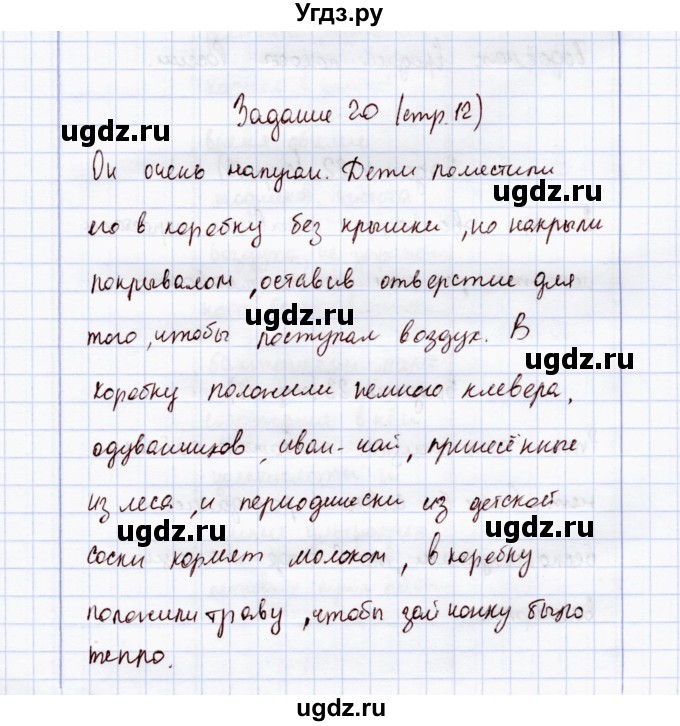 Угдз.ру
Задание 20 (стр. 12)
ugdz.ru
Он очень напуган. Дети поместили
ugdz.ru
его в коробку без крышки, но накрыли
покрывалом, оставив отверстие для
ugdz.ru
того, чтобы поступал воздух. В
ugdz.ru
коробку положили немного клевера,
одуванчиков, иван-чай, принесённые
из леса, и периодически из детской
ugdz.ru ugdz.ru
соски кормят молоком, в коробку
положили траву, чтобы зайчонку было
тепло.
ugdz.ru